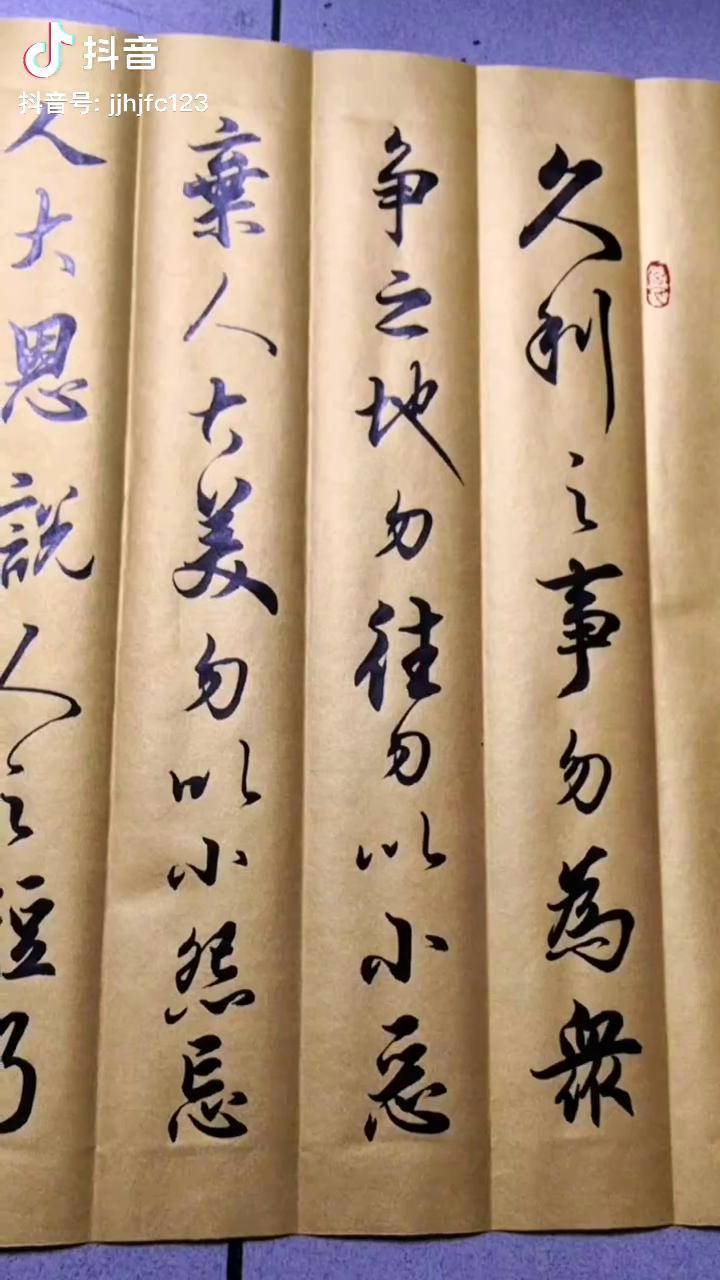 抖音
抖音号: jjhjfc123
久利之事勿為衆
争之地勿往勿以小惡
棄人大美勿以小怨忘
人大恩説人之短乃